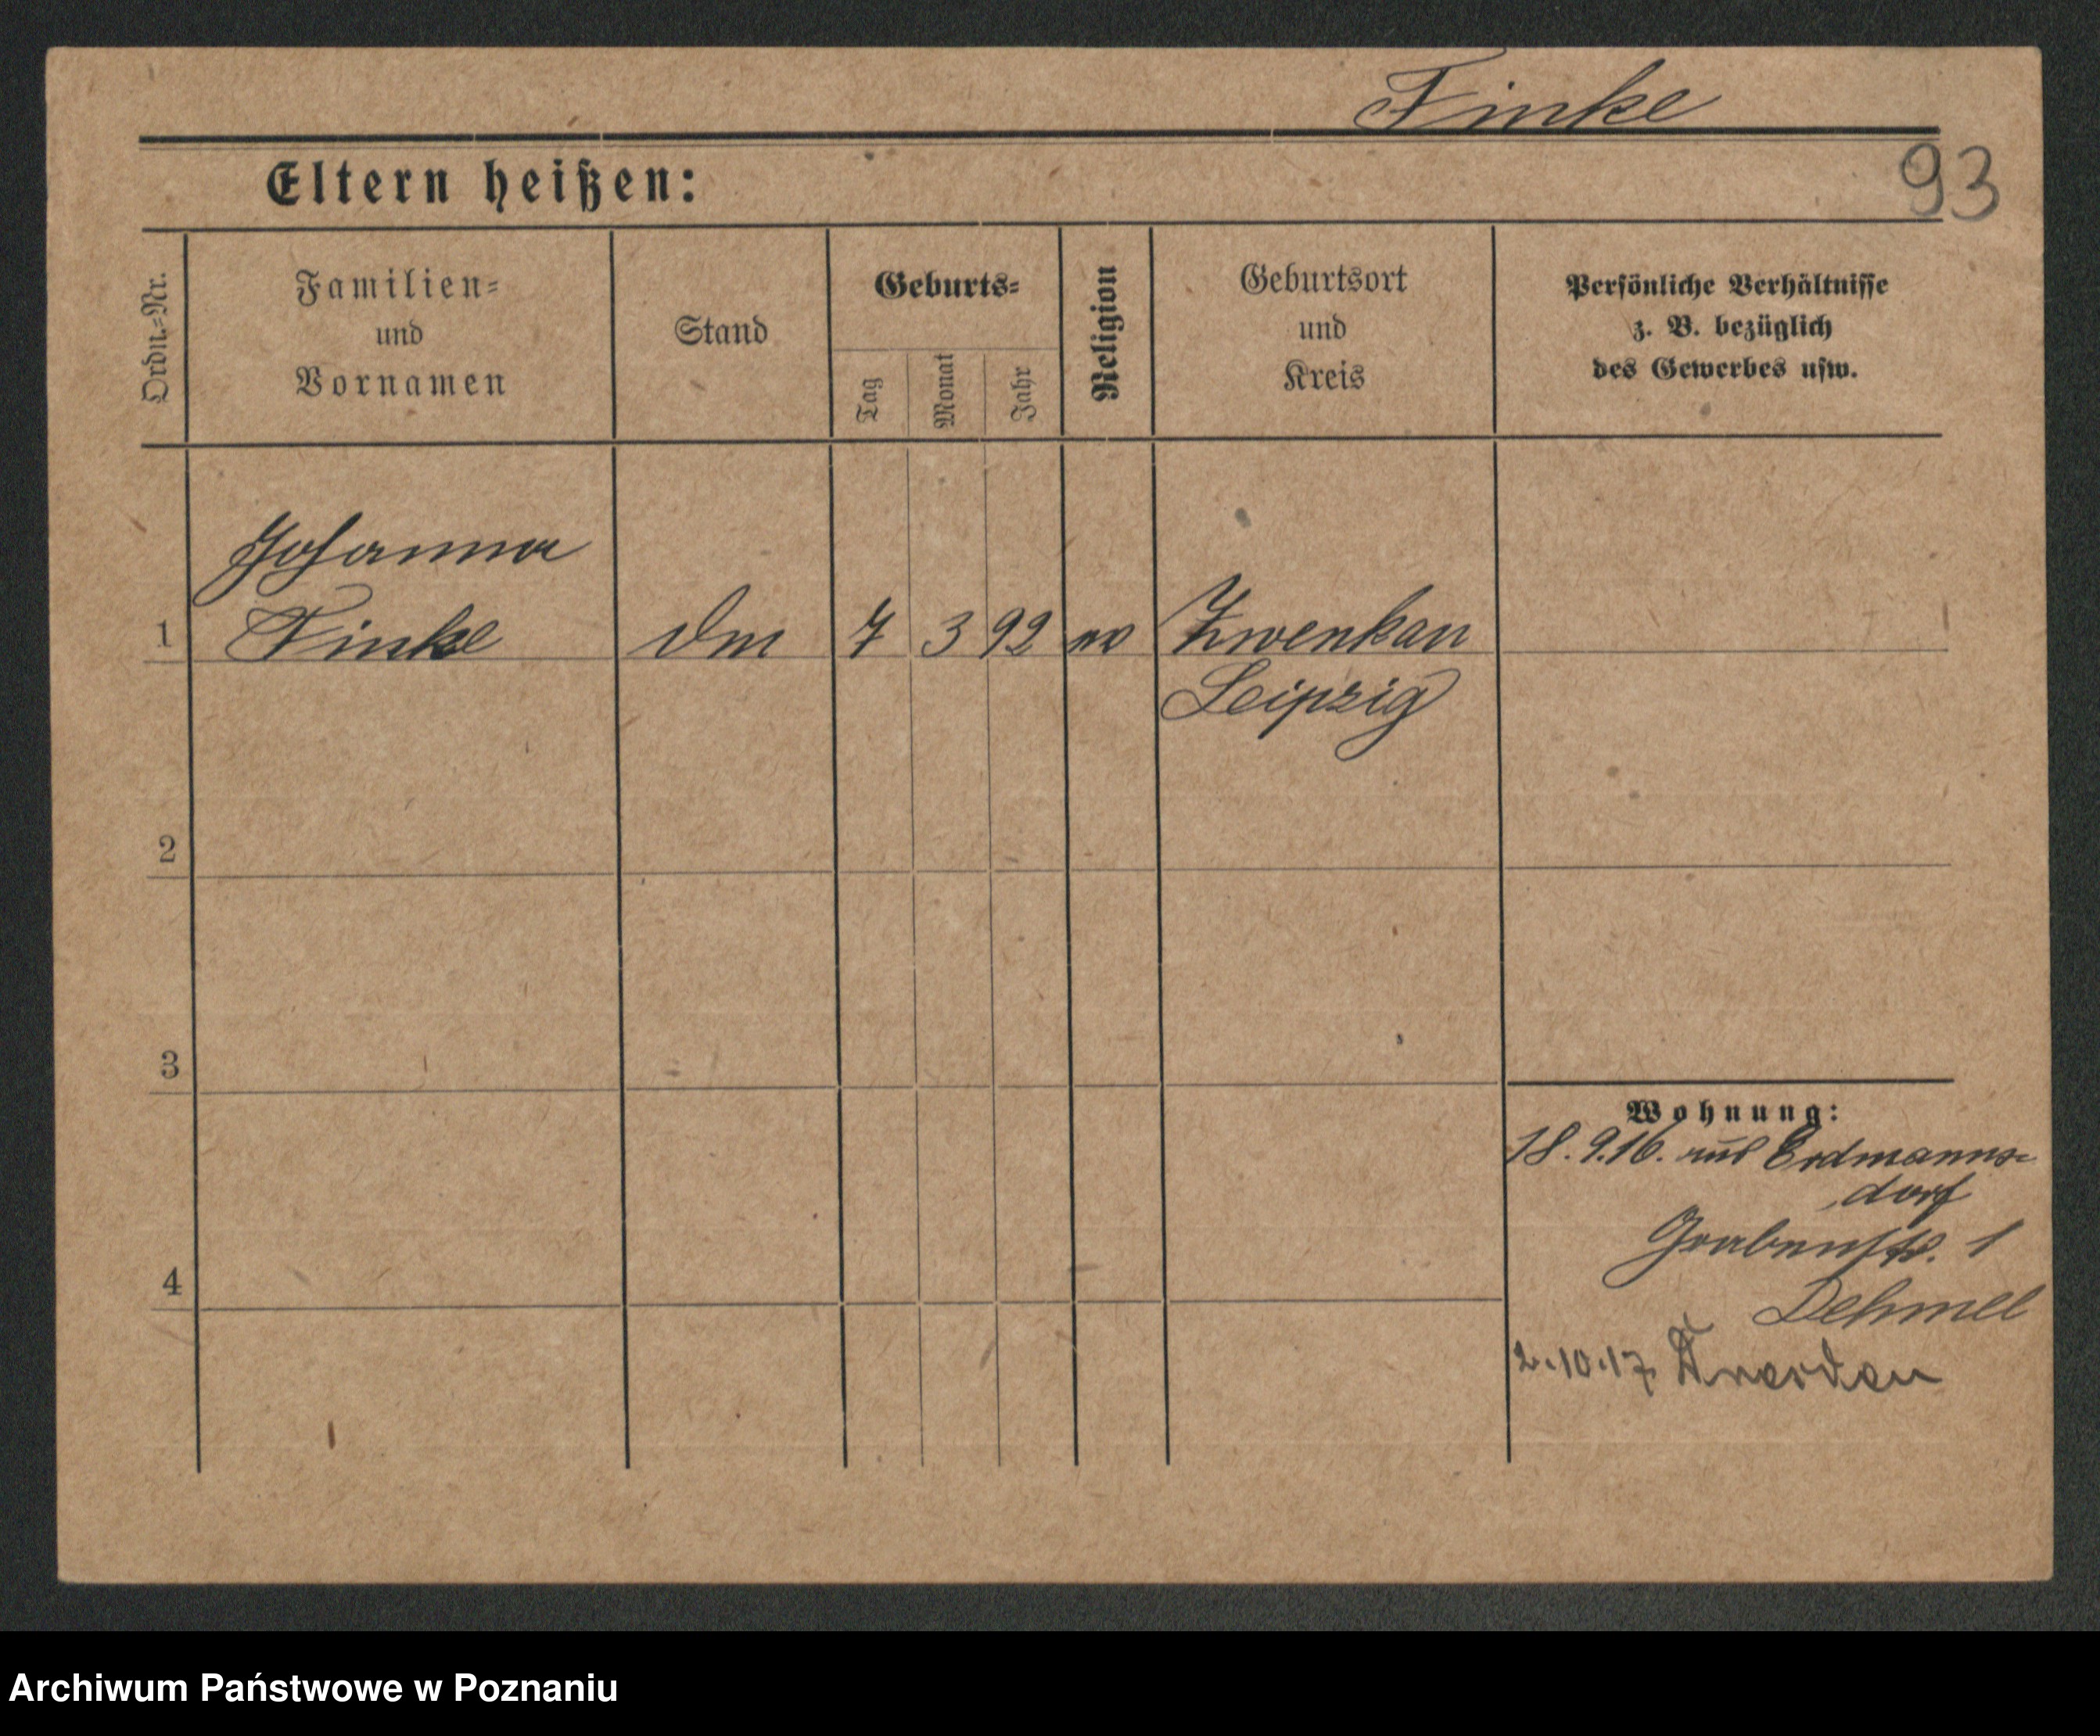 Finke
93
Eltern heißen:
Ordn.-Nr.
Familien-
und
Vornamen
Stand
Geburts-
Tag
Monat
Jahr
Religion
Geburtsort
und
Kreis
Persönliche Verhältnisse
z. B. bezüglich
des Gewerbes usw.
Johanna
1 Finke 7 3 92 Zwenkau
Leipzig
2
3
4
Wohnung:
18. 9.16. aus Erdmanns-
dorf
Grabenstr. 1
Dehmel
2.10.17 Dresden
Archiwum Państwowe w Poznaniu